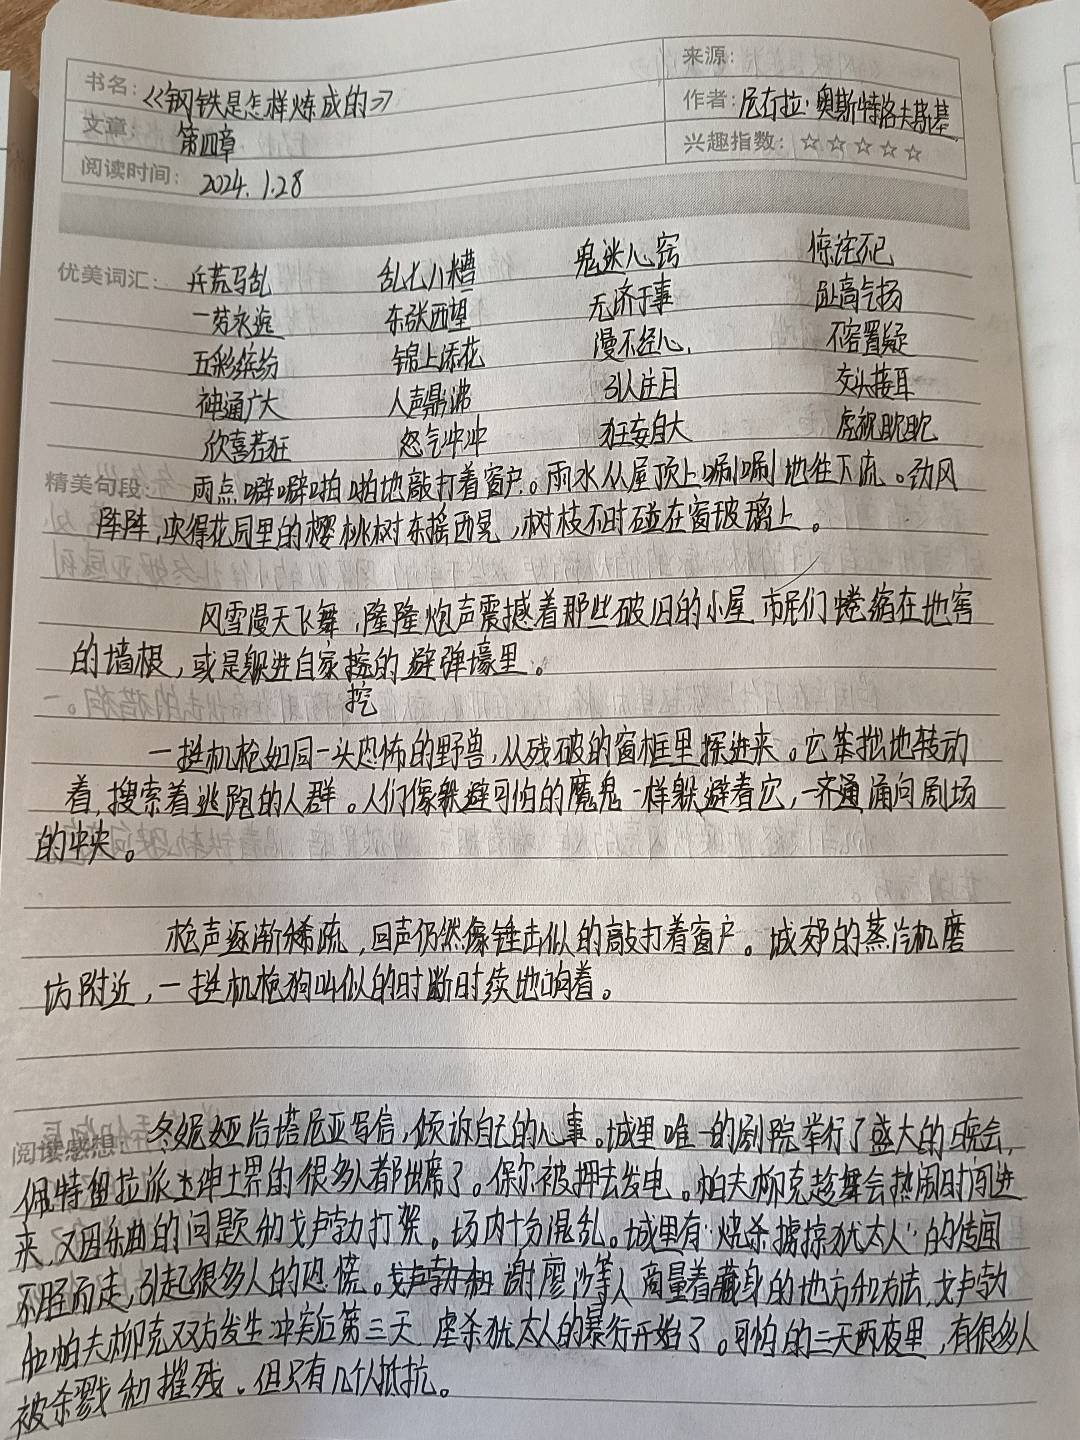 书名：《钢铁是怎样炼成的》
来源：
作者：尼古拉·奥斯特洛夫斯基
文章：第四章
兴趣指数：☆☆☆☆☆
阅读时间：2024.1.28
优美词汇：兵荒马乱 乱七八糟 鬼迷心窍 惊诧不已
一劳永逸 东张西望 无济于事 趾高气扬
五彩缤纷 锦上添花 漫不经心 不容置疑
神通广大 人声鼎沸 引人注目 交头接耳
欣喜若狂 怒气冲冲 狂妄自大 虎视眈眈
精美句段：雨点噼噼啪啪地敲打着窗户。雨水从屋顶上唰唰地往下流。劲风
阵阵，吹得花园里的樱桃树东摇西晃，树枝不时碰在窗玻璃上。
风雪漫天飞舞，隆隆炮声震撼着那些破旧的小屋，市民们蜷缩在地窖
的墙根，或是躲进自家挖的避弹壕里。
挖
一挺机枪如同一头恐怖的野兽，从残破的窗框里探进来。它笨拙地转动
着，搜索着逃跑的人群。人们像躲避可怕的魔鬼一样躲避着它，一齐通涌向剧场
的中央。
枪声逐渐稀疏，回声仍然像锤击似的敲打着窗户。城郊的蒸汽机磨
坊附近，一挺机枪狗叫似的时断时续地响着。
阅读感想：冬妮娅给塔尼亚写信，倾诉自己的心事。城里唯一的剧院举行了盛大的晚会，
佩特留拉派士绅士界的很多人都出席了。保尔被押去发电。帕夫柳克趁舞会热闹时闯进
来，又因乐曲的问题和戈卢勃打架。场内十分混乱。城里有“烧杀掳掠犹太人”的传闻
不胫而走，引起很多人的恐慌。戈卢勃和谢廖沙等人商量着藏身的地方和方法，戈卢勃
和帕夫柳克双方发生冲突后第三天，虐杀犹太人的暴行开始了。可怕的三天两夜里，有很多人
被杀戮和摧残，但只有几个人抵抗。